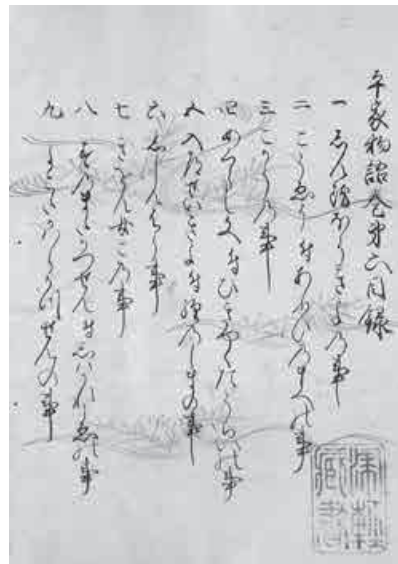 平家物語巻第六目録
一 しん院ほうきよの事
二 こうえう付あふひのまへの事
三 こかうの事
四 めくらし文付ひきやくたうらいの事
五 入道せいきよ付経のしまの事
六 ししんはうの事
七 きをん女この事
八 すのまたかつせん付しはかれこゑの事
九 よこたかはらかつせんの事